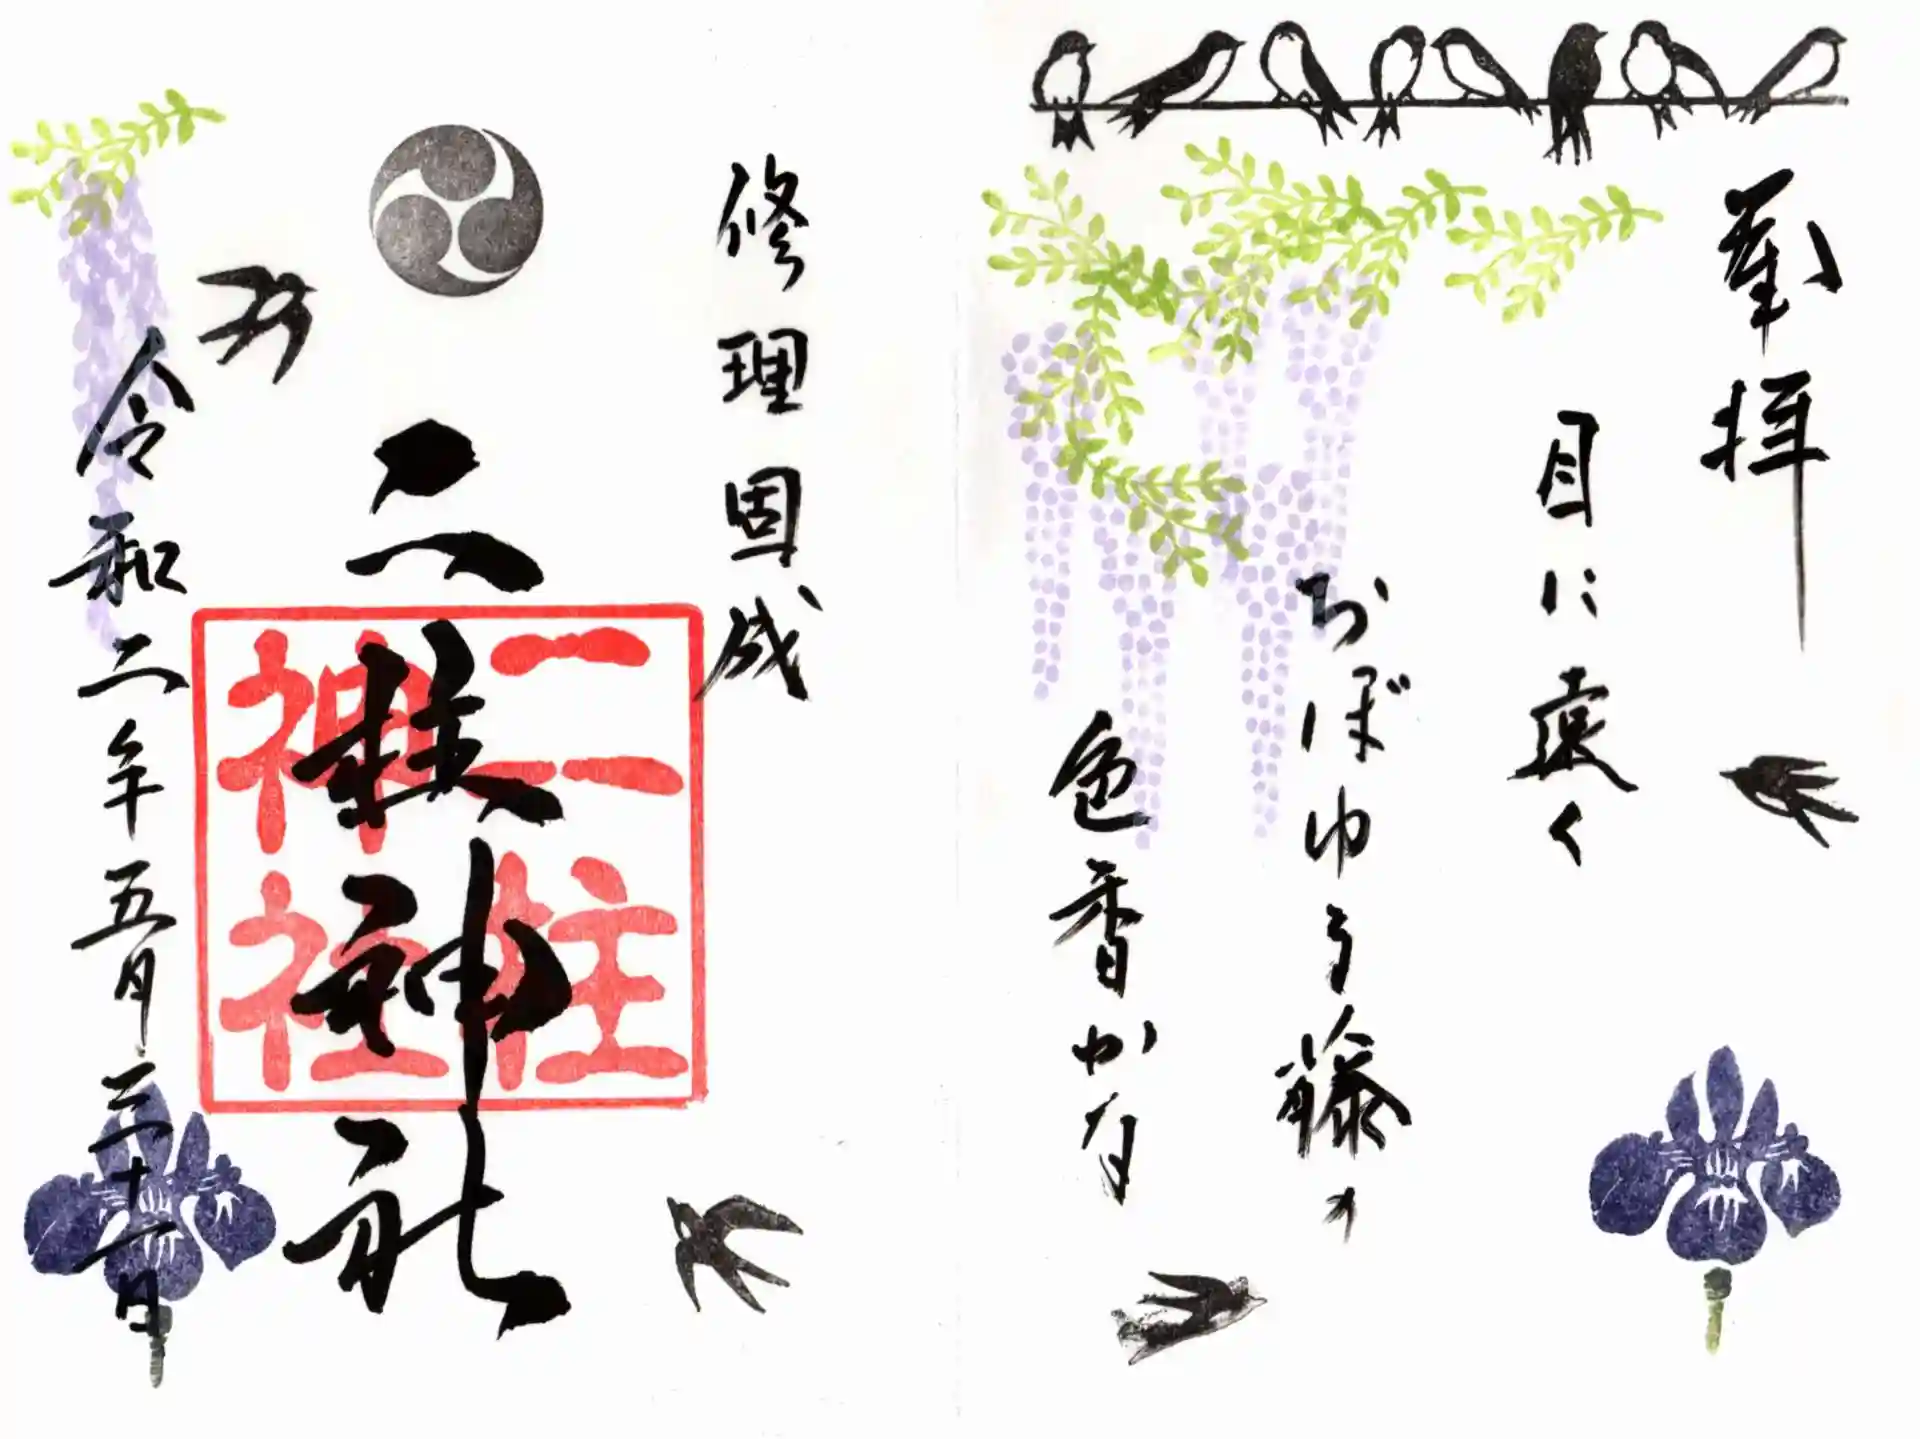 奉拝
目に遠く
おぼゆる藤の
色香かな
修理固成
二柱神社
二柱
神社
令和二年五月三十一日